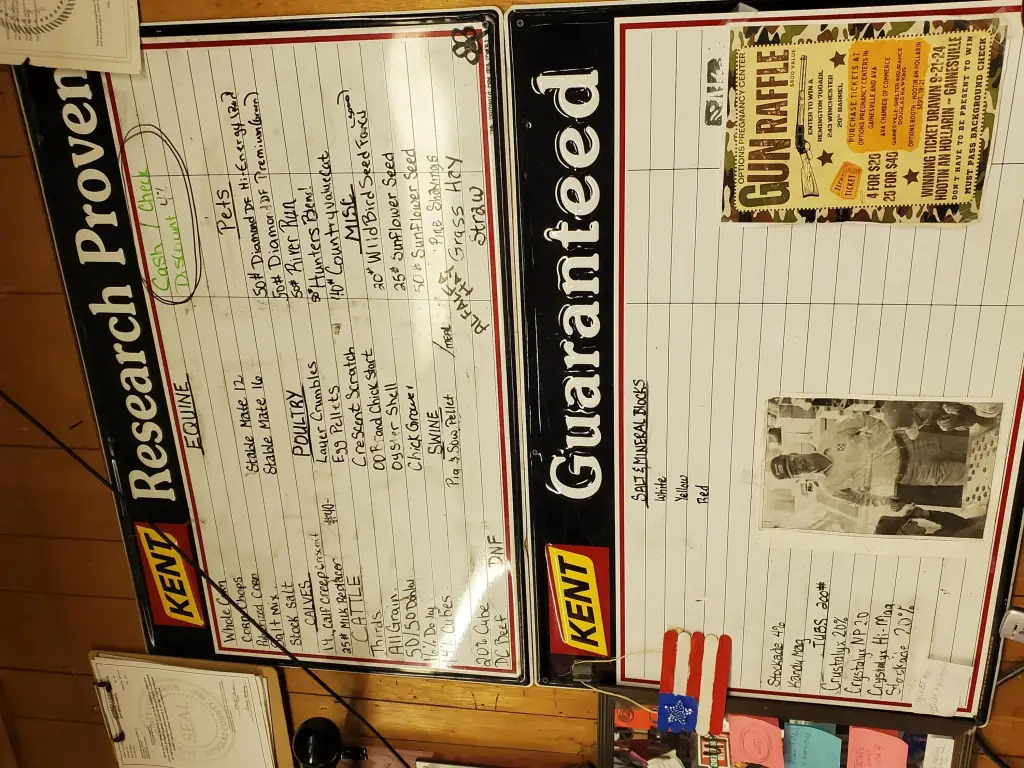 KENT Research Proven
Cash / Check
Discount 4%
EQUINE
Stable Mate 12
Stable Mate 16
POULTRY
Layer Crumbles
Egg Pellets
Crescent Scratch
Chick Start
Oyster Shell
Chick Grower
SWINE
Pig & Sow Pellet
/med
Pets
50# Diamond DF Hi-Energy (Red)
50# Diamond DF Premium
50# River Run
50# Hunters Blend
40# Country Value Cat
MISC
20# Wild Bird Seed
25# Sunflower Seed
50# Sunflower Seed
Pine Shavings
Grass Hay
ALFALFA HAY
Straw
Whole Corn
Corn Chops
Corn
Salt Mix
Stock Salt
CALVES
Calf Creep
$40-
25# Milk Replacer
CATTLE
Thirds
All Grain
50/50
14% Cubes
20% Cube
DNF
DC Beef
KENT Guaranteed
SALT & MINERAL BLOCKS
White
Yellow
Red
Stockade 4%
Kandy Mag
TUBS 200#
Crystalyx 20%
Crystalyx MP 20
Crystalyx Hi-Mag
Stockade 20%
OPTIONS PREGNANCY CENTER
GUN RAFFLE
$600 VALUE
ENTER TO WIN A
REMINGTON 700ADL
243 WINCHESTER
20" BARREL
TICKET
4 FOR $20
20 FOR $40
PURCHASE TICKETS AT
OPTIONS PREGNANCY CENTERS IN
GAINESVILLE AND AVA
AVA CHAMBER OF COMMERCE
GAINESVILLE-SHELTER INSURANCE
DOUGLAS HAWKINS
OPTIONS BOOTH - HOOTIN AN HOLLARIN
WINNING TICKET DRAWN 9-21-24
HOOTIN AN HOLLARIN ~ GAINESVILLE
DON'T HAVE TO BE PRESENT TO WIN
MUST PASS BACKGROUND CHECK